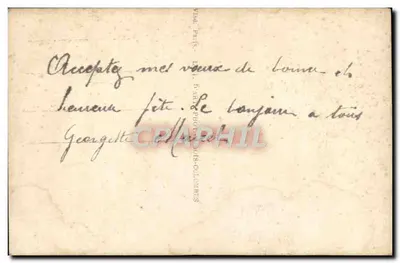 Acceptez mes vœux de bonne et
heureuse fête. Le bonjour a tous
Georgette Marcel
Cparama